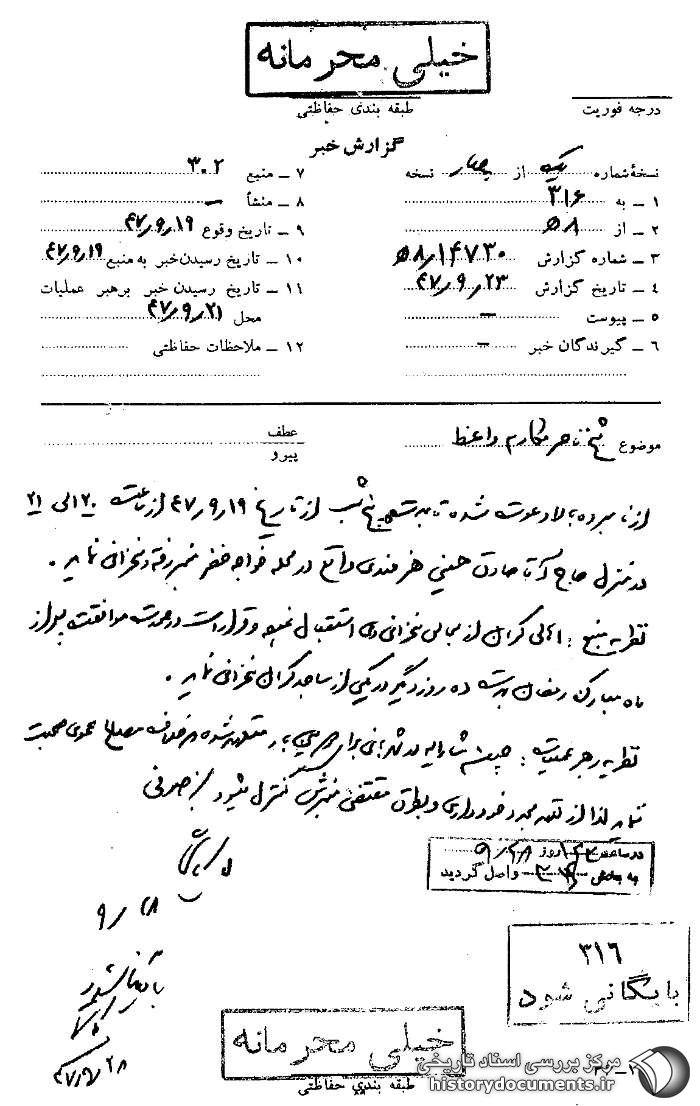 خیلی محرمانه
درجه فوریت
طبقه بندی حفاظتی
گزارش خبر
نسخهٔ شماره یک از چهار نسخه
۱ – به ۳۱۶
۲ – از ۵۸
۳ – شماره گزارش ۵۸/۱۴۷۳۰
۴ – تاریخ گزارش ۴۷/۹/۲۳
۵ – پیوست –
۶ – گیرندگان خبر –
۷ – منبع ۳۰۲
۸ – منشأ –
۹ – تاریخ وقوع ۴۷/۹/۱۹
۱۰ – تاریخ رسیدن خبر به منبع ۴۷/۹/۱۹
۱۱ – تاریخ رسیدن خبر برهبر عملیات
محل ۴۷/۹/۲۱
۱۲ – ملاحظات حفاظتی
موضوع شیخ ناصر مکارم واعظ
عطف
پیرو
از نامبرده بالا دعوت شده تا مدت پنج شب از تاریخ ۴۷/۹/۱۹ از ساعت ۲۰ الی ۲۱
در منزل حاج آقا صادق حسینی هنرمندی واقع در محله خواجه خضر منبر رفته و سخنرانی نماید .
نظریه منبع : اهالی از مجالس سخنرانی وی استقبال نموده و قرار است در صورت موافقت بعد از
ماه مبارک رمضان مدت ده روز دیگر در یکی از مساجد سخنرانی نماید .
نظریه رهبر عملیات : چون متعهد شده بر خلاف مصالح عمومی صحبت
ننماید لذا از تعهد مجدد خودداری و بطرق مقتضی منبرش کنترل میشود
در ساعت روز ۹/۲۸
به بخش ۳۱۶ واصل گردید
۹/۲۸
بایگانی شود
۴۷/۹/۲۸
۳۱۶
بایگانی شود
خیلی محرمانه
طبقه بندی حفاظتی
مرکز بررسی اسناد تاریخی
historydocuments.ir